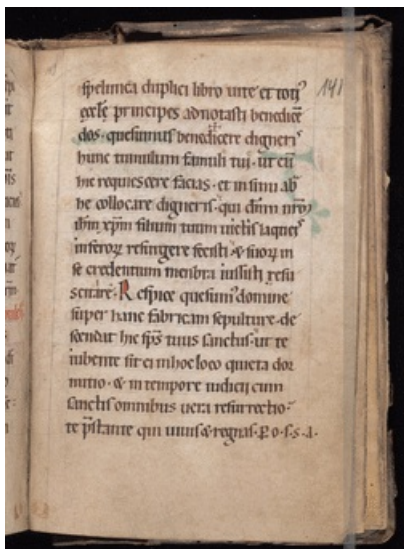 141
spelunca duplici libro uite et toti᾽
eccle principes adnotasti benedicē
dos. quesumus benedicere digneris
hunc tumulum famuli tui. ut eū
hic requiescere facias. et in sinu ab
he collocare digneris. qui dnm nrm
ihm xpm filium tuum uictis laqueis
inferorꝝ resurgere fecisti & suorꝝ in
se credentium menbra iussisti resu
scitare. Respice quesumus domine
super hanc fabricam sepulture. de
scendat hic sps tuus sanctus. ut te
iubente sit ei in hoc loco quieta dor
mitio. & in tempore iudicii cum
sanctis omnibus uera resurrectio.
te pstante qui uiuis & regnas. P. o. s. s. a.